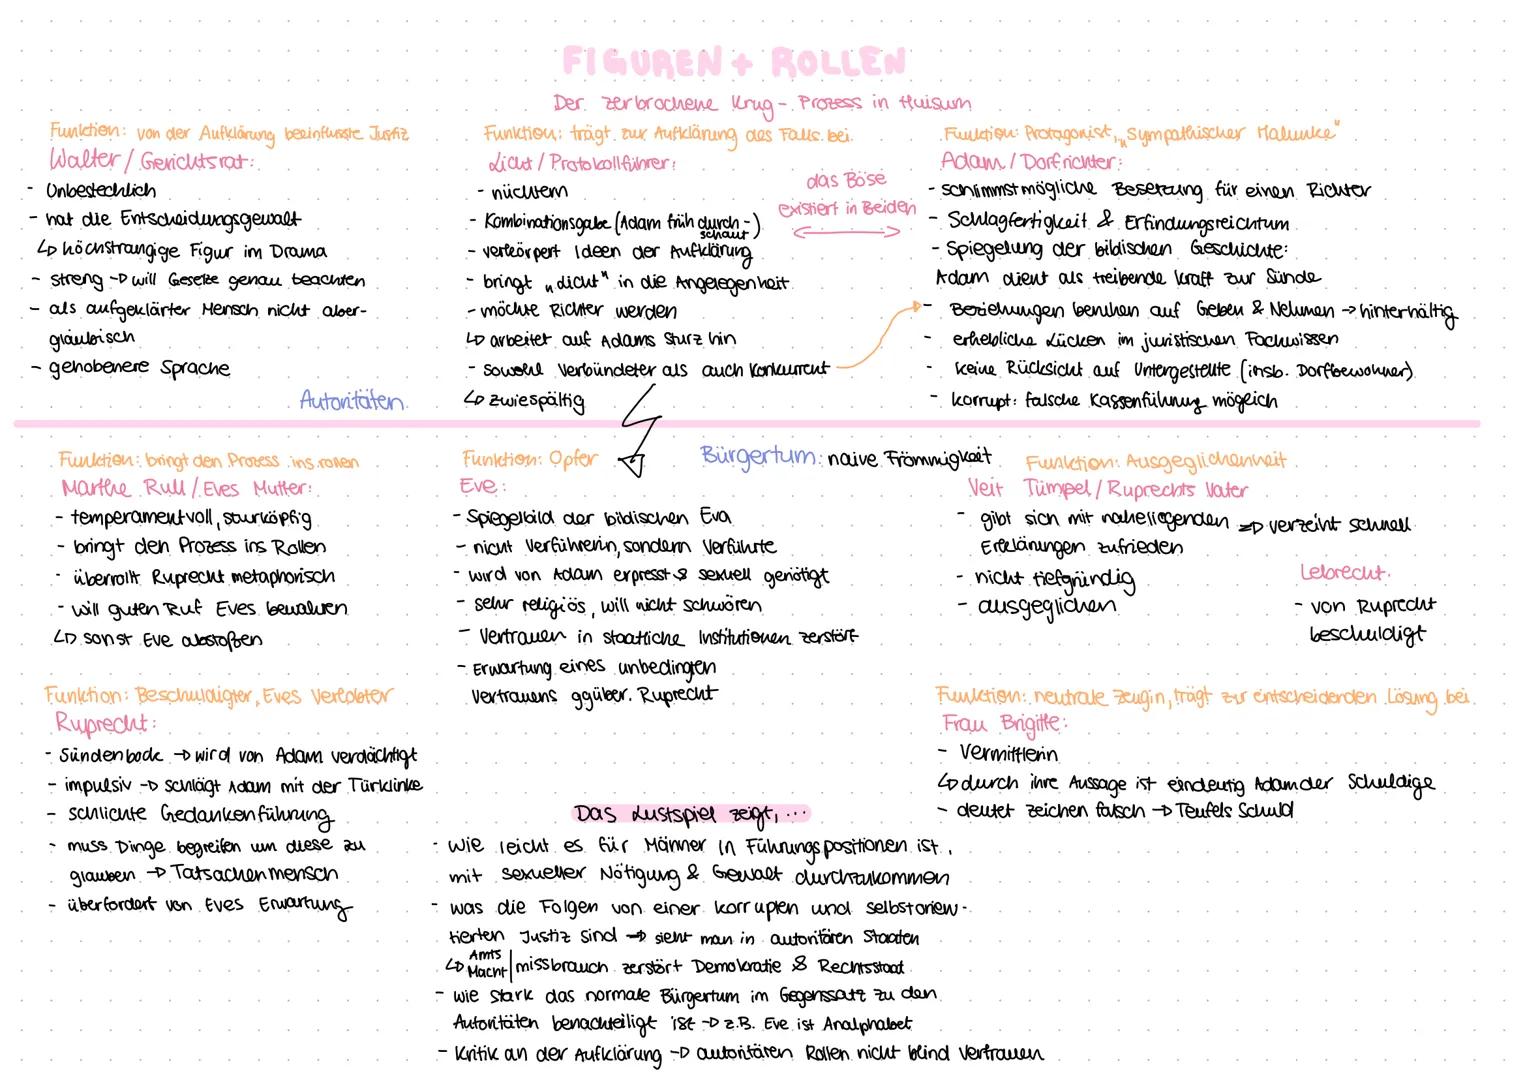 FIGUREN + ROLLEN
Der zerbrochene Krug - Prozess in Huisum
Funktion: von der Aufklärung beeinflusste Justiz
Walter / Gerichtsrat:
- Unbestechlich
- hat die Entscheidungsgewalt
↳ höchstrangige Figur im Drama
- streng → will Gesetze genau beachten
- als aufgeklärter Mensch nicht aber-
gläubisch
- gehobenere Sprache
Autoritäten
Funktion: trägt zur Aufklärung des Falls bei
Licht / Protokollführer:
- nüchtern
- Kombinationsgabe (Adam früh durch-)
schaut
- verkörpert Ideen der Aufklärung
- bringt „Licht" in die Angelegenheit
- möchte Richter werden
↳ arbeitet auf Adams Sturz hin
- sowohl Verbündeter als auch Konkurrent
↳ zwiespältig
das Böse
existiert in Beiden
Funktion: Protagonist, „Sympathischer Halunke"
Adam / Dorfrichter:
- schlimmstmögliche Besetzung für einen Richter
- Schlagfertigkeit & Erfindungsreichtum
- Spiegelung der biblischen Geschichte:
Adam dient als treibende Kraft zur Sünde
- Beziehungen beruhen auf Geben & Nehmen → hinterhältig
- erhebliche Lücken im juristischen Fachwissen
- keine Rücksicht auf Untergestellte (insb. Dorfbewohner)
- korrupt: falsche Kassenführung möglich
Funktion: bringt den Prozess ins rollen
Marthe Rull / Eves Mutter:
- temperamentvoll, sturköpfig
- bringt den Prozess ins Rollen
- überrollt Ruprecht metaphorisch
- will guten Ruf Eves bewahren
↳ sonst Eve abstoßen
Funktion: Opfer
Eve:
- Spiegelbild der biblischen Eva
- nicht Verführerin, sondern Verführte
- wird von Adam erpresst & sexuell genötigt
- sehr religiös, will nicht schwören
- Vertrauen in staatliche Institutionen zerstört
- Erwartung eines unbedingten
Vertrauens ggüber. Ruprecht
Bürgertum: naive Frömmigkeit
Funktion: Ausgeglichenheit
Veit Tümpel / Ruprechts Vater
- gibt sich mit naheliegenden ⇒ verzeiht schnell
Erklärungen zufrieden
- nicht tiefgründig
- ausgeglichen
Lebrecht:
- von Ruprecht
beschuldigt
Funktion: Beschuldigter, Eves Verlobter
Ruprecht:
- Sündenbock → wird von Adam verdächtigt
- impulsiv → schlägt Adam mit der Türklinke
- schlichte Gedankenführung
- muss Dinge begreifen um diese zu
glauben → Tatsachenmensch
- überfordert von Eves Erwartung
Funktion: neutrale Zeugin, trägt zur entscheidenden Lösung bei
Frau Brigitte:
- Vermittlerin
↳ durch ihre Aussage ist eindeutig Adam der Schuldige
- deutet Zeichen falsch → Teufels Schuld
Das Lustspiel zeigt, ...
- wie leicht es für Männer in Führungspositionen ist,
mit sexueller Nötigung & Gewalt durchzukommen
- was die Folgen von einer korrupten und selbstorien-
tierten Justiz sind → sieht man in autoritären Staaten
↳ Amts
Macht | missbrauch zerstört Demokratie & Rechtsstaat
- wie stark das normale Bürgertum im Gegenssatz zu den
Autoritäten benachteiligt ist → z.B. Eve ist Analphabet
- Kritik an der Aufklärung → autoritären Rollen nicht blind vertrauen